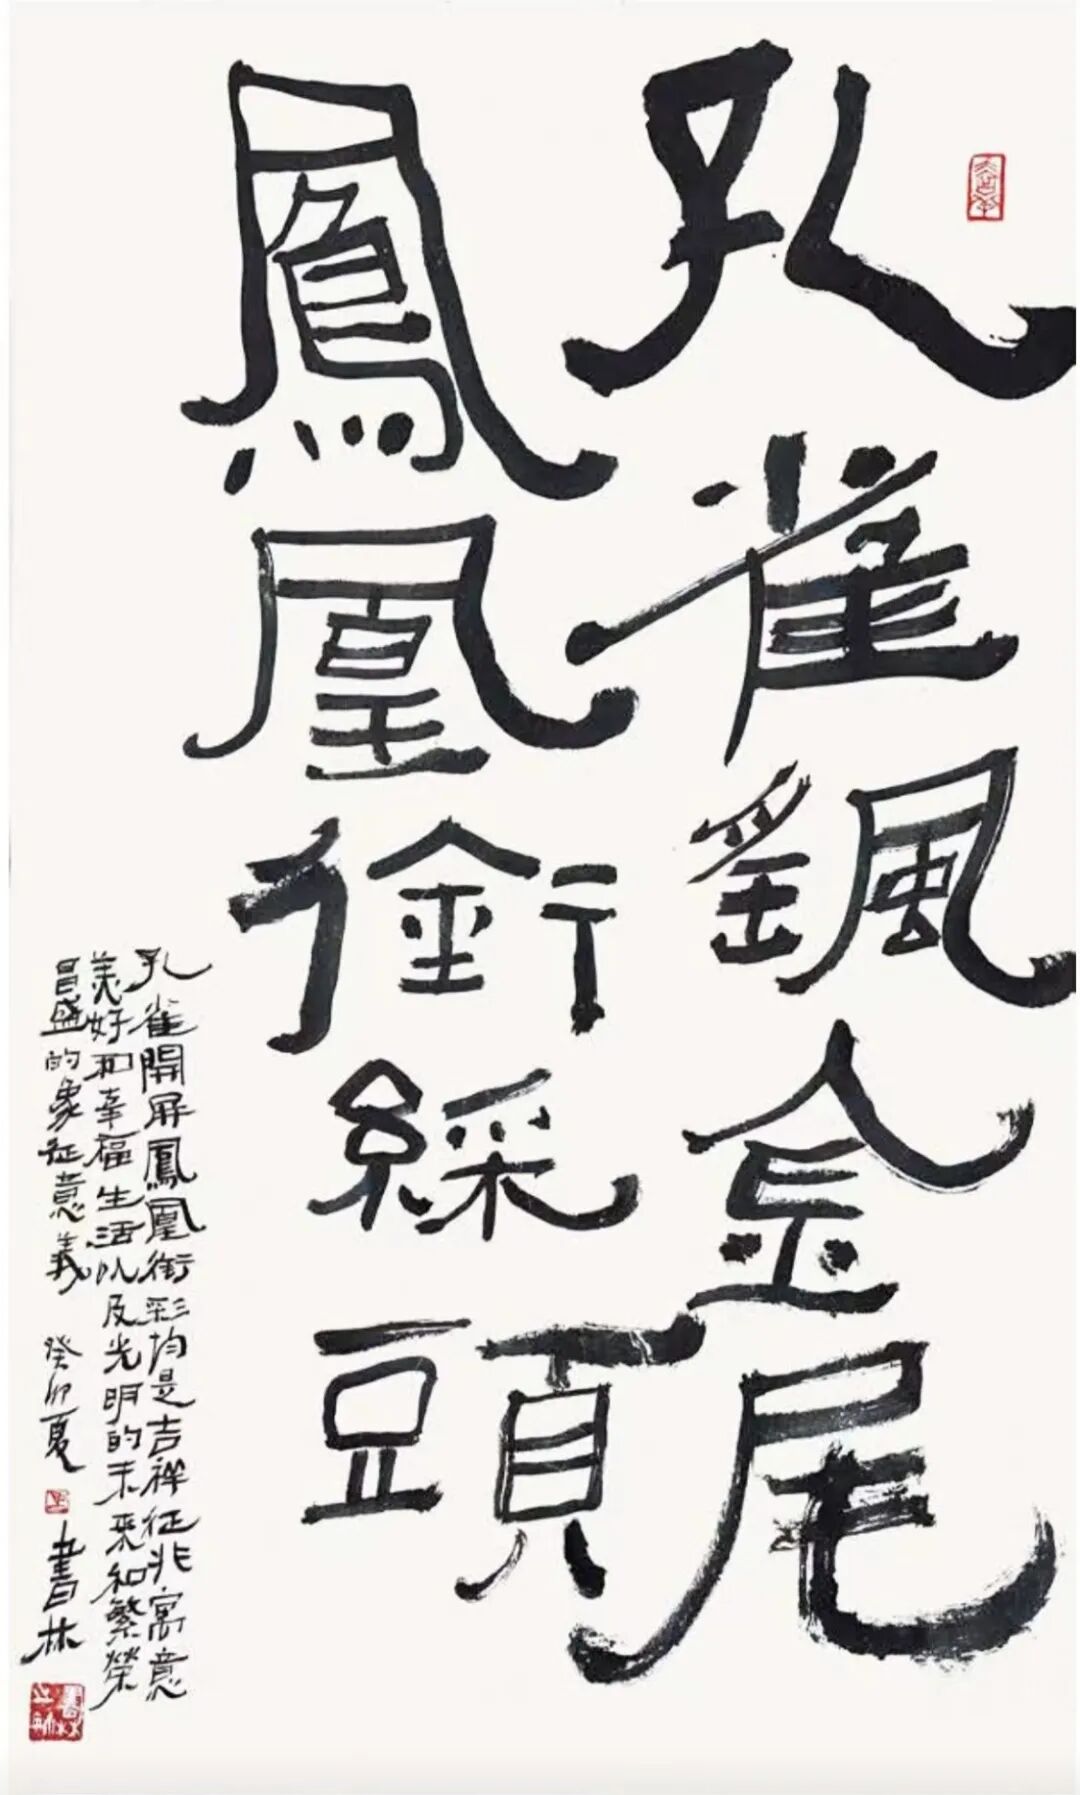 孔雀颻金尾
鳳凰銜綵頭
孔雀開屏鳳凰銜彩均是吉祥征兆寓意
美好和幸福生活以及光明的未来和繁榮
昌盛的象征意義 癸卯夏 書林